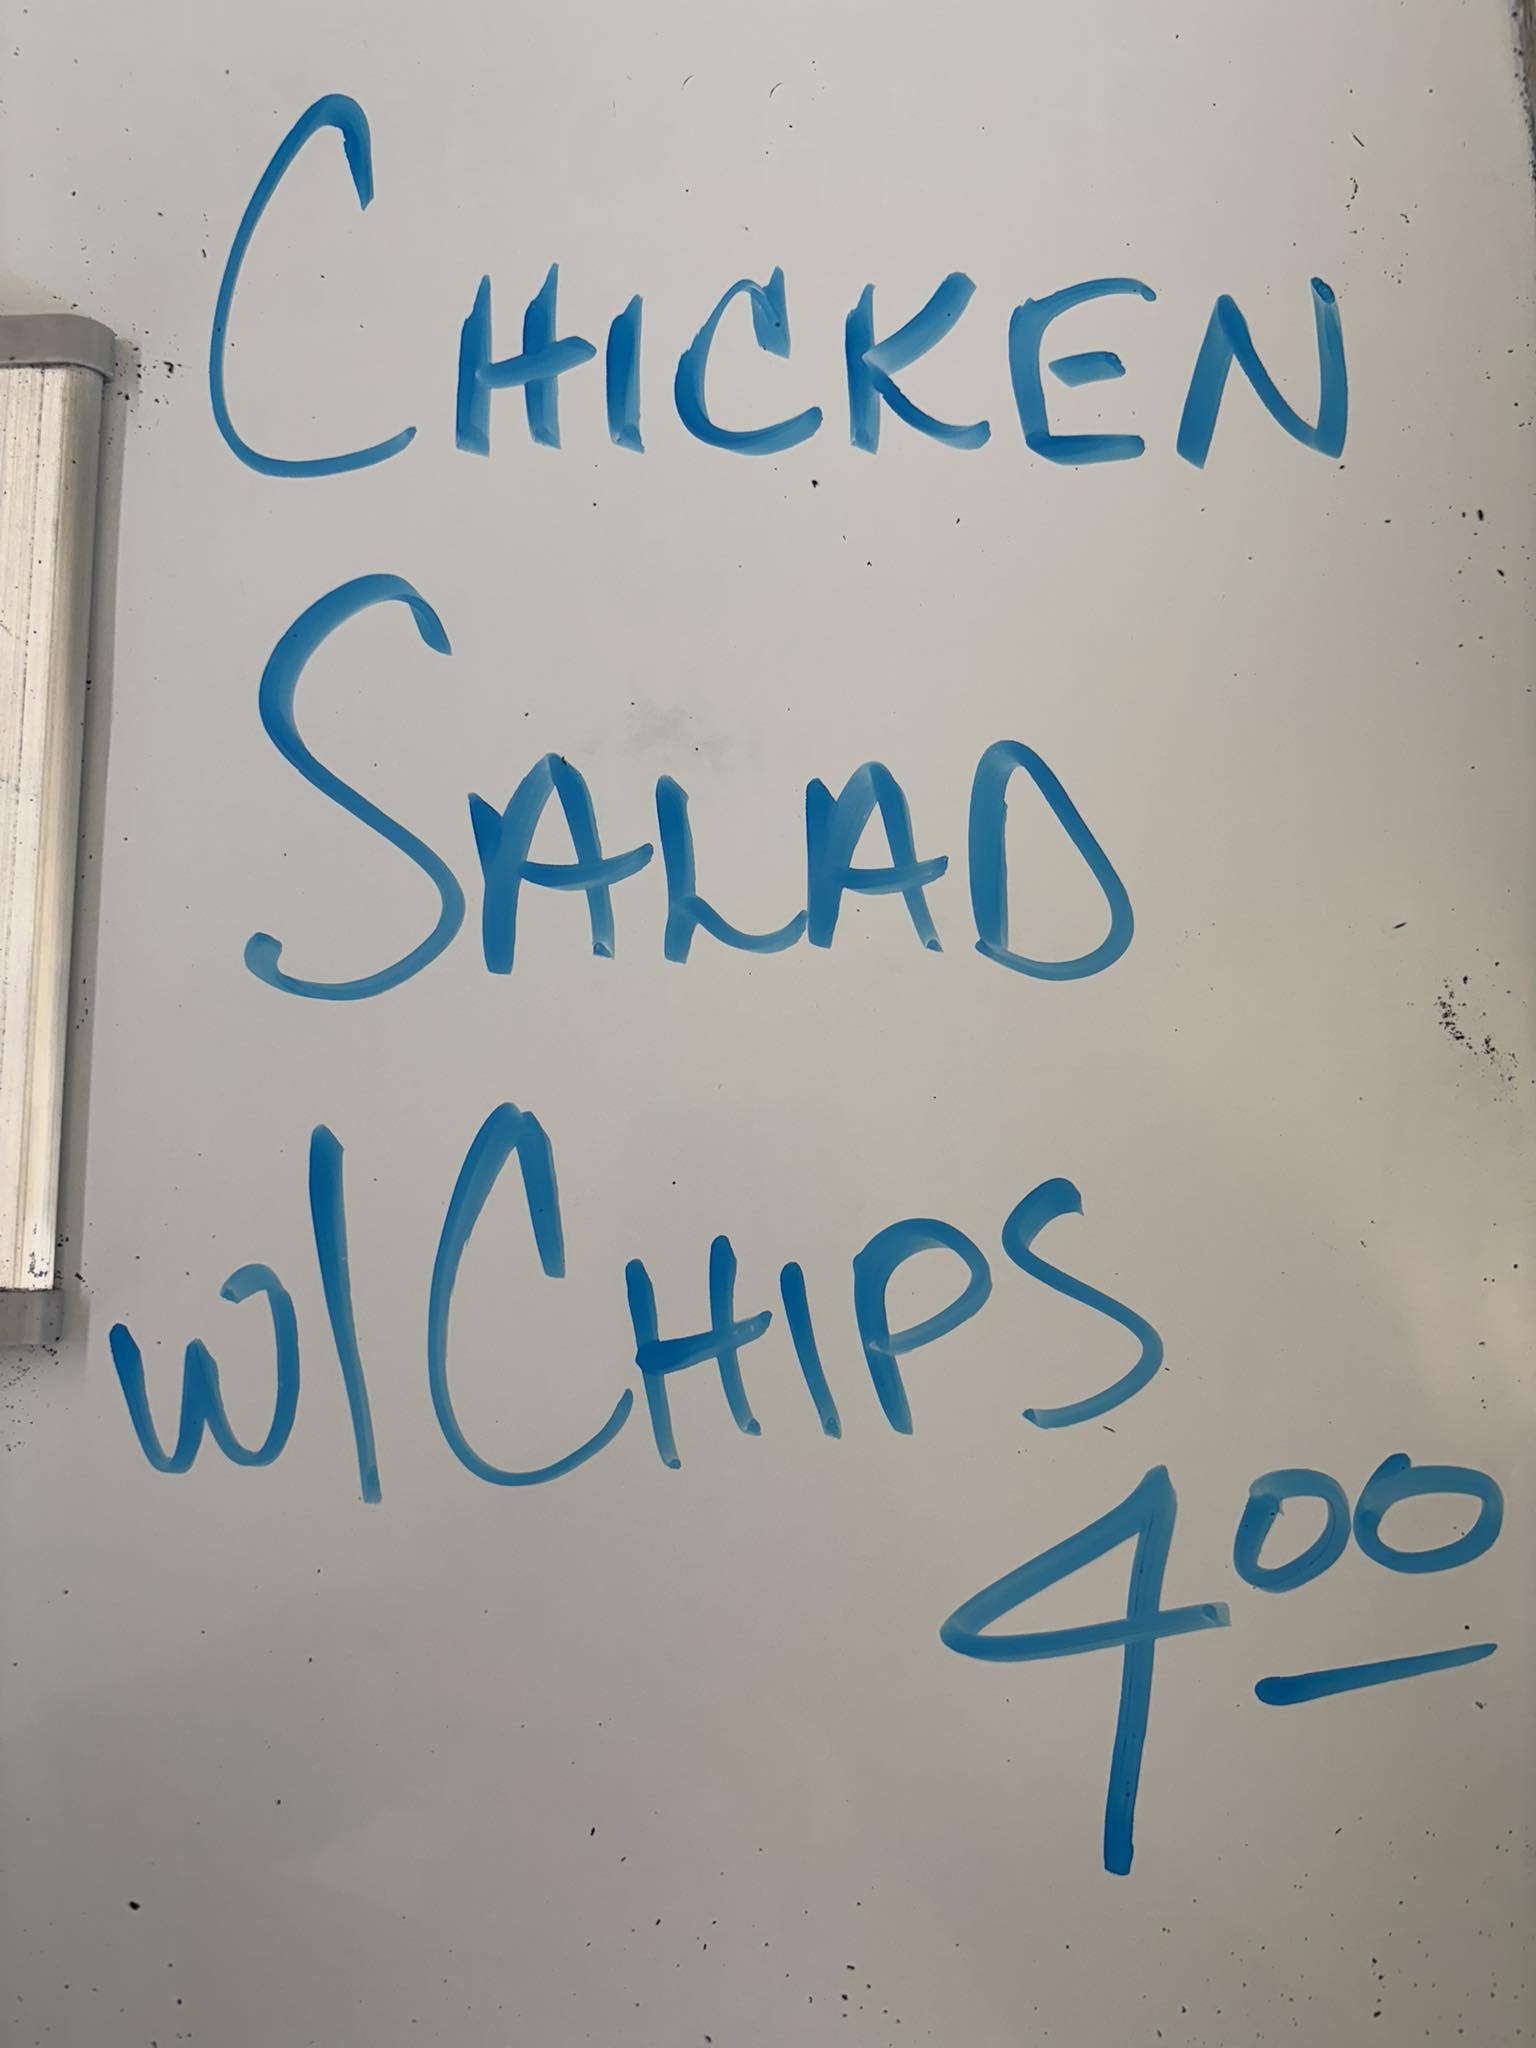 CHICKEN
SALAD
W/CHIPS
4.00